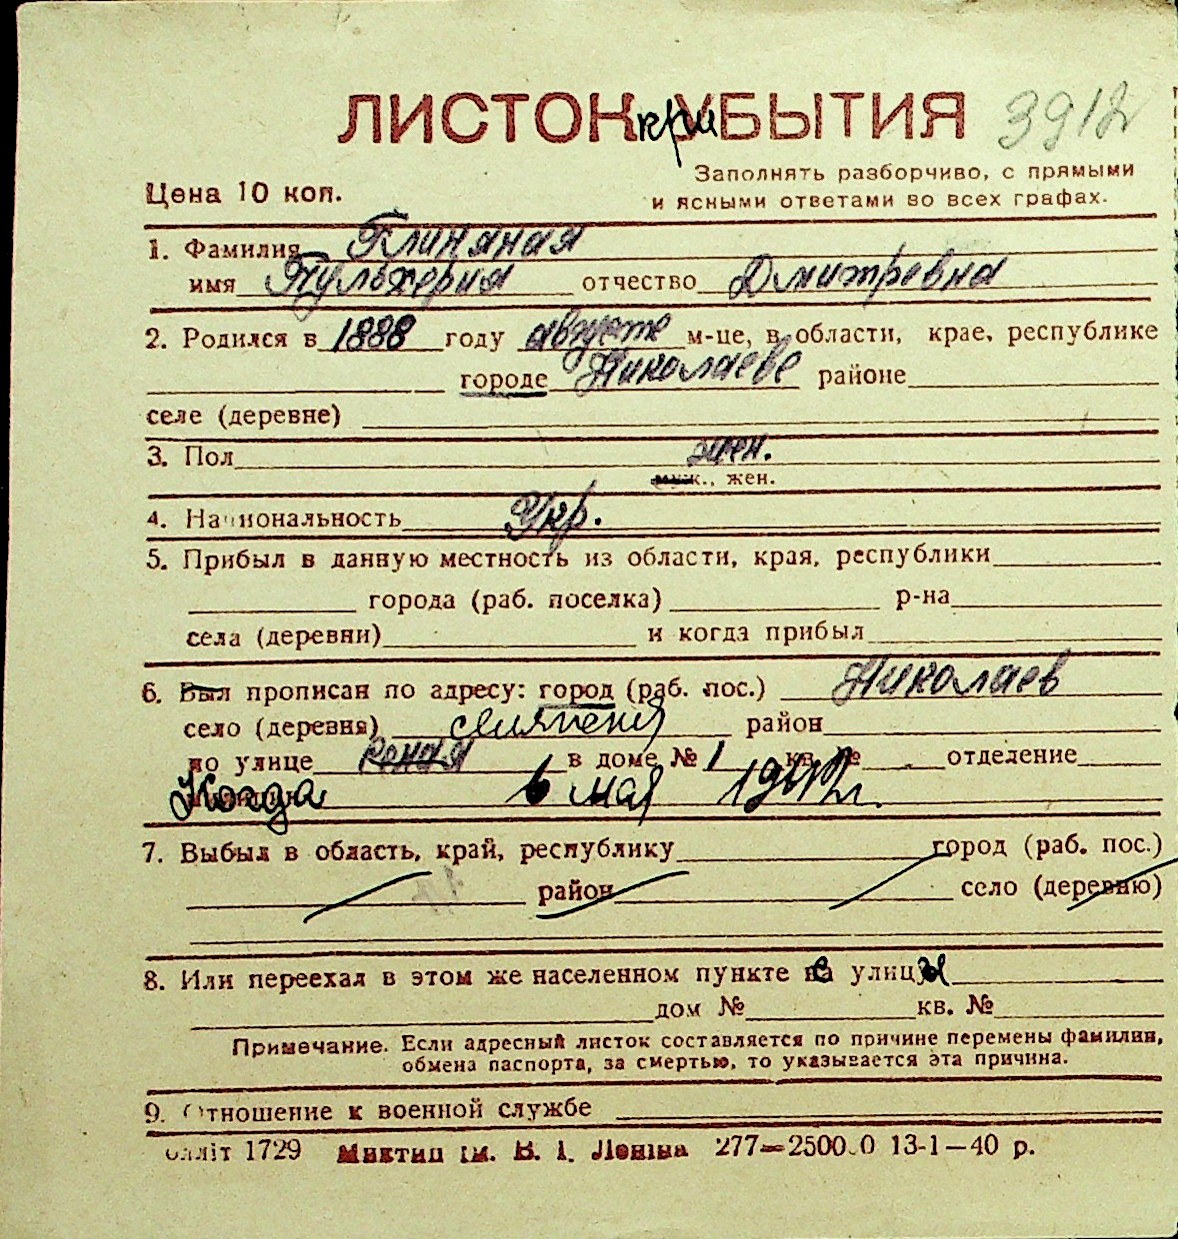 ЛИСТОК при УБЫТИЯ 3912
Цена 10 коп.
Заполнять разборчиво, с прямыми
и ясными ответами во всех графах.
1. Фамилия Глиняная
имя Пульхерия отчество Дмитревна
2. Родился в 1888 году августе м-це, в области, крае, республике
городе Николаеве районе
селе (деревне)
3. Пол жен.
муж., жен.
4. Национальность Укр.
5. Прибыл в данную местность из области, края, республики
города (раб. поселка) р-на
села (деревни) и когда прибыл
6. Был прописан по адресу: город (раб. пос.) Николаев
село (деревня) район
по улице в доме № 1 кв. № отделение
Когда 6 мая 1942 г.
7. Выбыл в область, край, республику город (раб. пос.)
район село (деревню)
8. Или переехал в этом же населенном пункте с улицы
дом № кв. №
Примечание. Если адресный листок составляется по причине перемены фамилии,
обмена паспорта, за смертью, то указывается эта причина.
9. Отношение к военной службе
1729 Миктип ім. В. І. Леніна 277—2500.0 13-1—40 р.